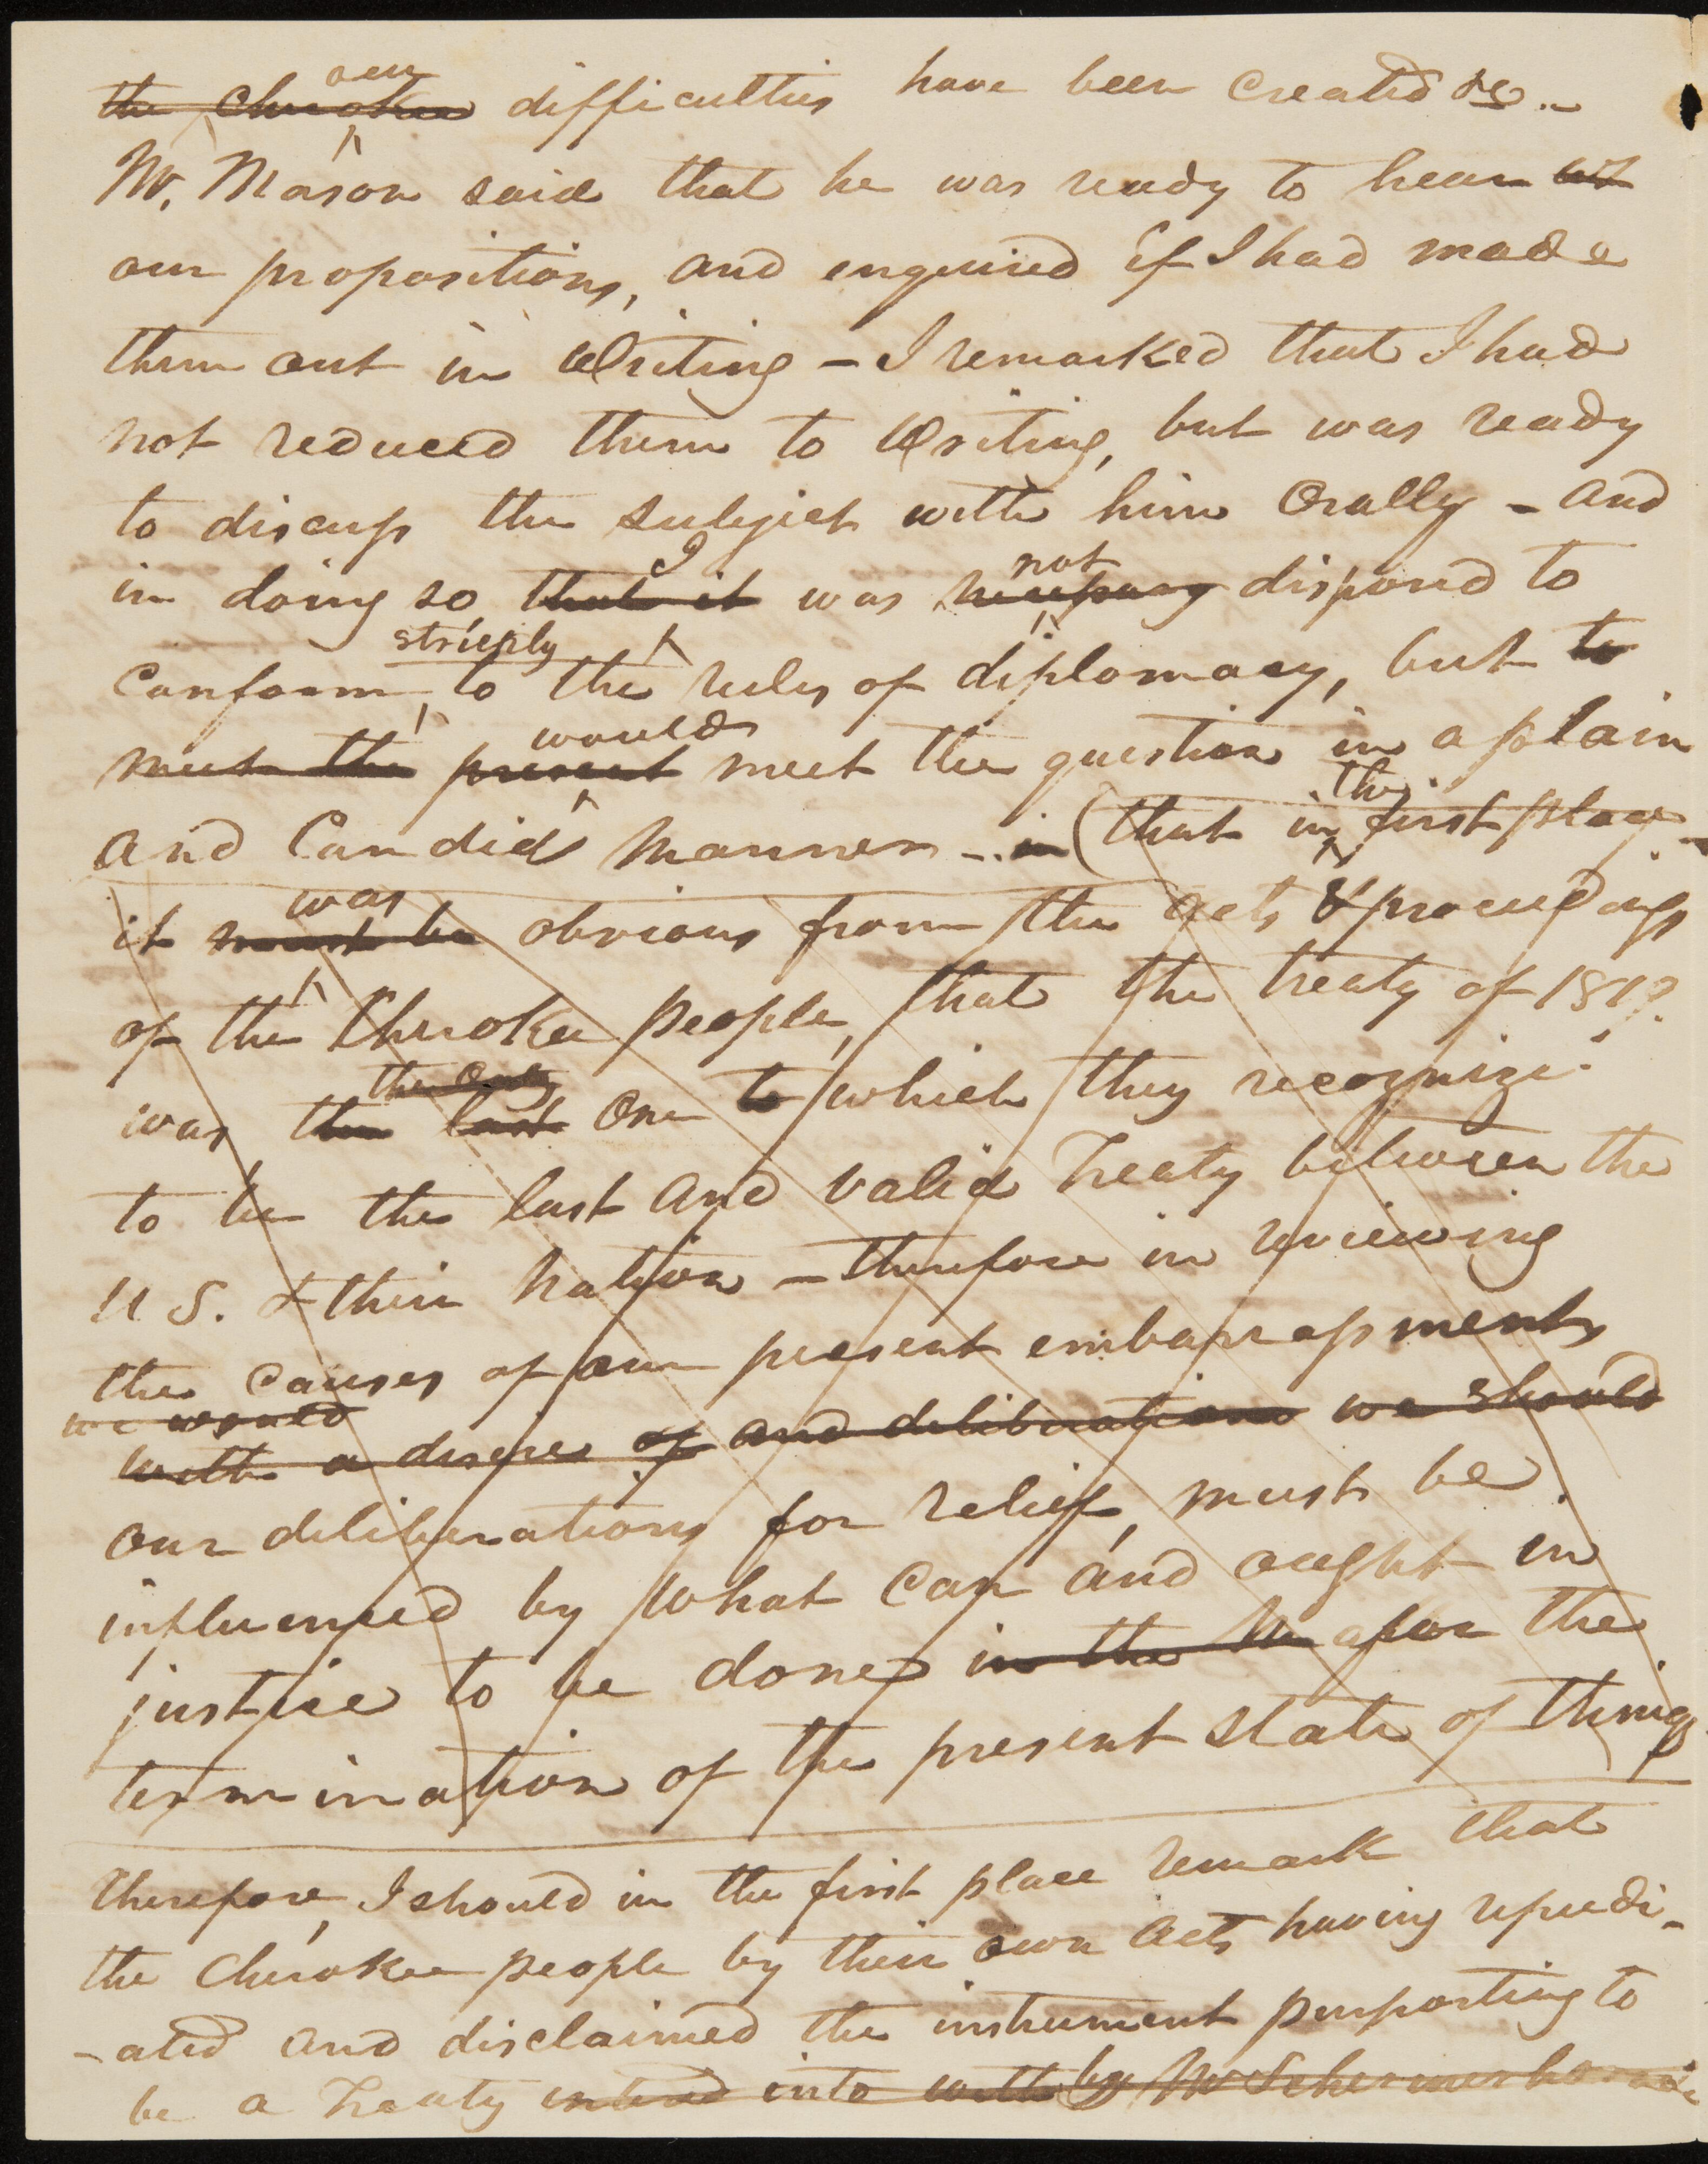 our
the Cherokee difficulties have been created &c. –
Mr. Mason said that he was ready to hear
our propositions, and enquired if I had made
them out in Writing – I remarked that I had
not reduced them to Writing, but was ready
to discuss the subject with him Orally – and
I not
in doing so, that it was necessary disposed to
strictly
Conform, to the rules of diplomacy, but to
would
meet the present meet the question in a plain
the
and Candid manner – in (that in first place –
was
it must be obvious from the acts & proceedings
of the Cherokee people, that the treaty of 1819
the only
was the last one to which they recognize
to be the last and valid Treaty between the
U S. & their nation – therefore in reviewing
the causes of our present embarrassments
we would
with a desire of and deliberations we should
our deliberations for relief, must be
influenced by what can and ought in
justice to be done in the for the
termination of the present state of things
therefore, I should in the first place remark that
the Cherokee people by their own acts having repudi-
-ated and disclaimed the instrument purporting to
be a Treaty entered into with by Mr Schermerhorn